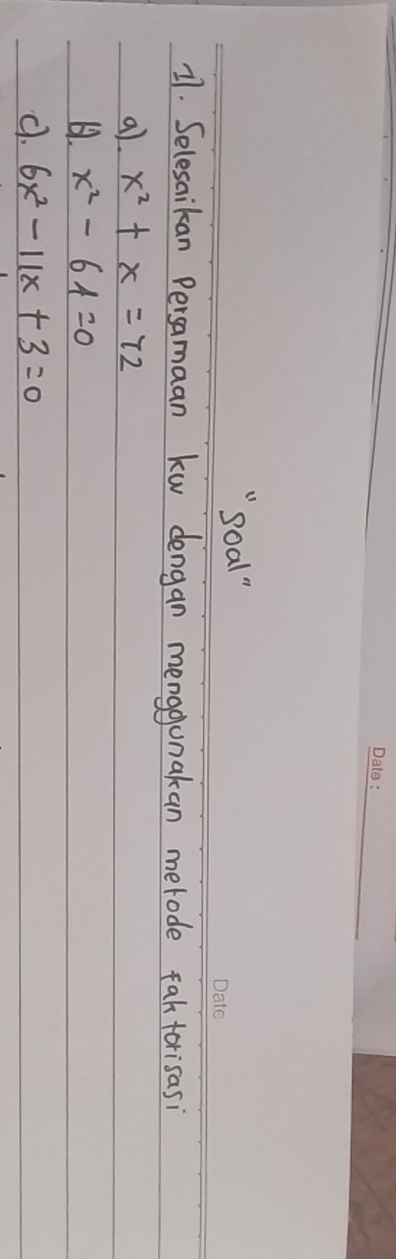 Date:
Date
"Soal"
1). Selesaikan Persamaan kw dengan menggunakan metode faktorisasi
a). x² + x = 42
b). x² - 64=0
c). 6x² - 11x + 3=0